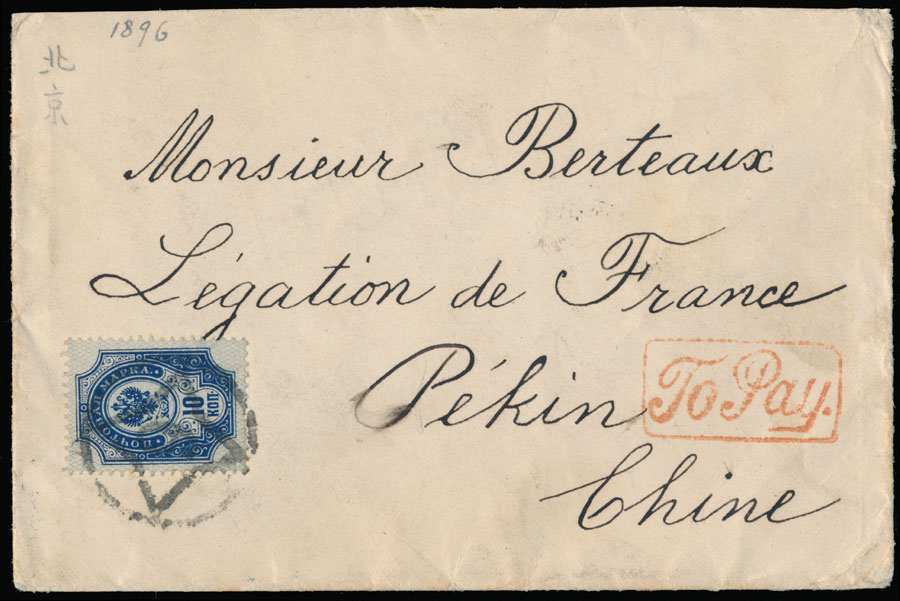 1896
北京
Monsieur Berteaux
Légation de France
Pékin
To Pay.
Chine
ПОЧТОВАЯ МАРКА.
10 КОП.